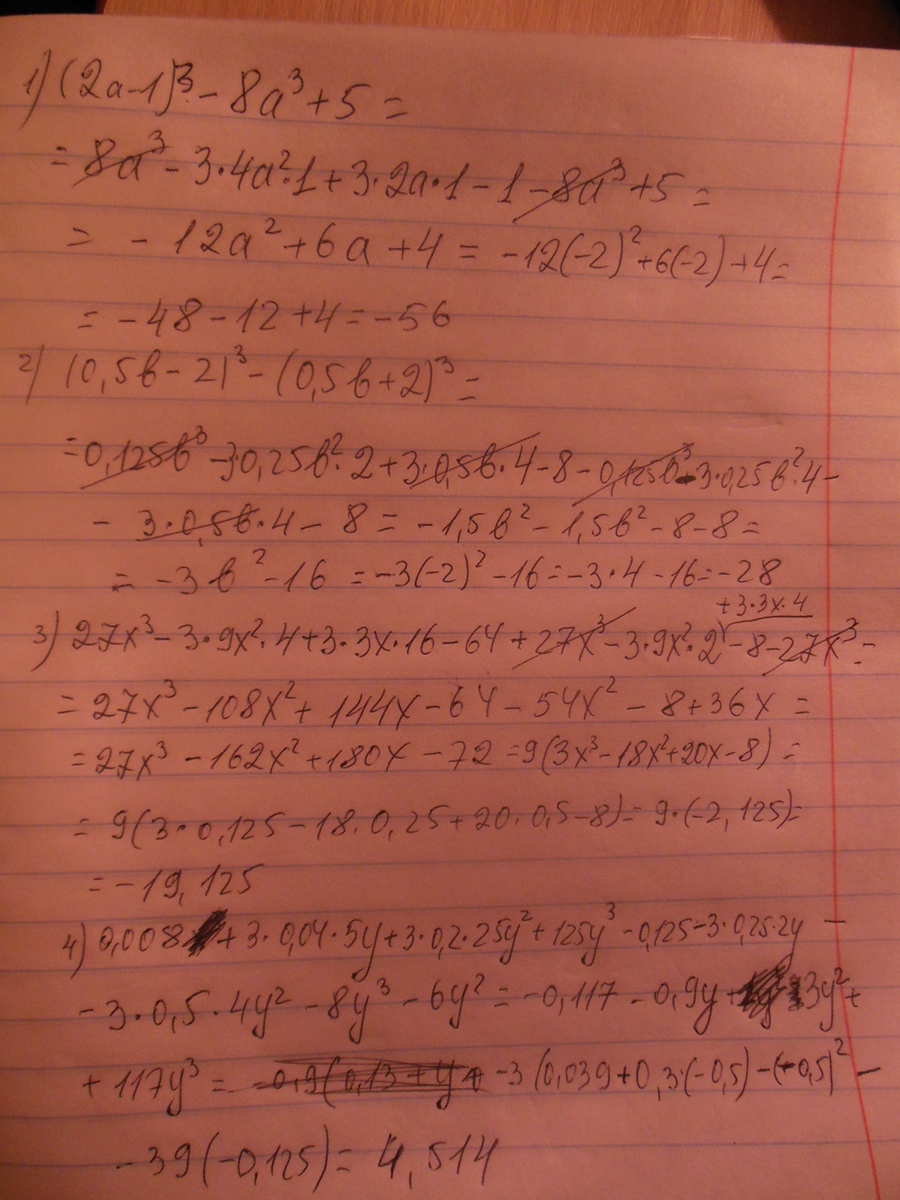 1) (2a-1)³ - 8a³ + 5 =
= 8a³ - 3·4a²·1 + 3·2a·1 - 1 - 8a³ + 5 =
= - 12a² + 6a + 4 = -12(-2)² + 6(-2) + 4 =
= -48 - 12 + 4 = -56
2) (0,5b - 2)³ - (0,5b + 2)³ =
= 0,125b³ - 3·0,25b²·2 + 3·0,5b·4 - 8 - 0,125b³ - 3·0,25b²·4 -
- 3·0,5b·4 - 8 = -1,5b² - 1,5b² - 8 - 8 =
= -3b² - 16 = -3(-2)² - 16 = -3·4 - 16 = -28
+3·3x·4
3) 27x³ - 3·9x²·4 + 3·3x·16 - 64 + 27x³ - 3·9x²·2 - 8 - 27x³ =
= 27x³ - 108x² + 144x - 64 - 54x² - 8 + 36x =
= 27x³ - 162x² + 180x - 72 = 9(3x³ - 18x² + 20x - 8) =
= 9(3·0,125 - 18·0,25 + 20·0,5 - 8) = 9·(-2,125) =
= -19,125
4) 0,008 + 3·0,04·5y + 3·0,2·25y² + 125y³ - 0,125 - 3·0,25·2y -
- 3·0,5·4y² - 8y³ - 6y² = -0,117 - 0,9y + 3y² +
+ 117y³ = -0,9(0,13 + y + -3(0,039 + 0,3·(-0,5) - (-0,5)² -
- 39(-0,125) = 4,514